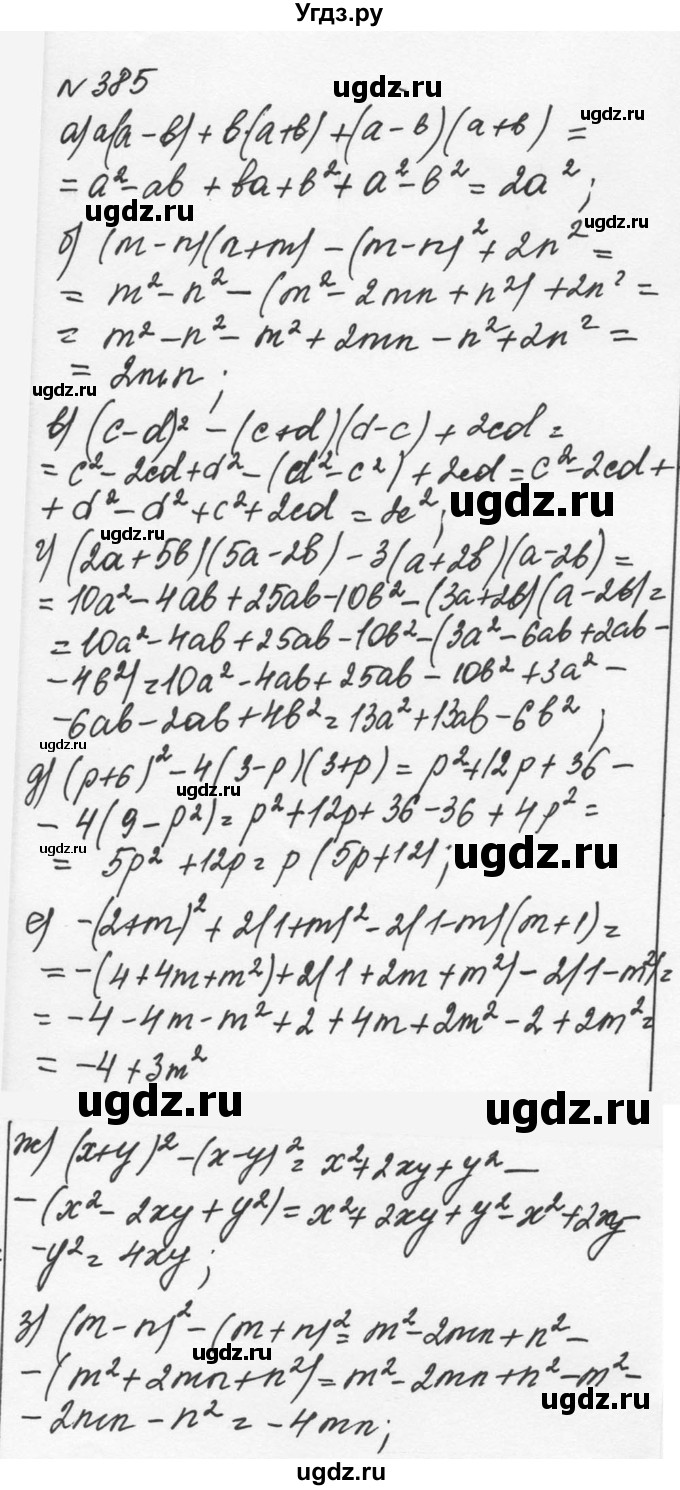 Угдз.ру
ugdz.ru
№ 385
а) a(a - b) + b·(a+b) + (a - b)(a+b) =
ugdz.ru
= a² - ab + ba + b² + a² - b² = 2a²;
ugdz.ru
б) (m - n)(n+m) - (m-n)² + 2n² =
= m² - n² - (m² - 2mn + n²) + 2n² =
= m² - n² - m² + 2mn - n² + 2n² =
ugdz.ru
= 2mn;
в) (c-d)² - (c+d)(d-c) + 2cd =
= c² - 2cd + d² - (d² - c²) + 2cd = c² - 2cd +
+ d² - d² + c² + 2cd = 2c²;
ugdz.ru
г) (2a + 5b)(5a - 2b) - 3(a + 2b)(a - 2b) =
= 10a² - 4ab + 25ab - 10b² - (3a+2b)(a - 2b) =
= 10a² - 4ab + 25ab - 10b² - (3a² - 6ab + 2ab -
- 4b²) = 10a² - 4ab + 25ab - 10b² + 3a² -
- 6ab - 2ab + 4b² = 13a² + 13ab - 6b²;
ugdz.ru
д) (p+6)² - 4(3-p)(3+p) = p² + 12p + 36 -
ugdz.ru
- 4(9 - p²) = p² + 12p + 36 - 36 + 4p² =
ugdz.ru
= 5p² + 12p = p(5p+12);
ugdz.ru
е) -(2+m)² + 2(1+m)² - 2(1-m)(m+1) =
= -(4+4m+m²) + 2(1+2m+m²) - 2(1-m²) =
= -4 - 4m - m² + 2 + 4m + 2m² - 2 + 2m² =
= -4 + 3m²
ugdz.ru
ugdz.ru
ж) (x+y)² - (x-y)² = x² + 2xy + y² -
- (x² - 2xy + y²) = x² + 2xy + y² - x² + 2xy -
- y² = 4xy;
з) (m - n)² - (m + n)² = m² - 2mn + n² -
ugdz.ru
- (m² + 2mn + n²) = m² - 2mn + n² - m² -
ugdz.ru
- 2mn - n² = -4mn;
ugdz.ru